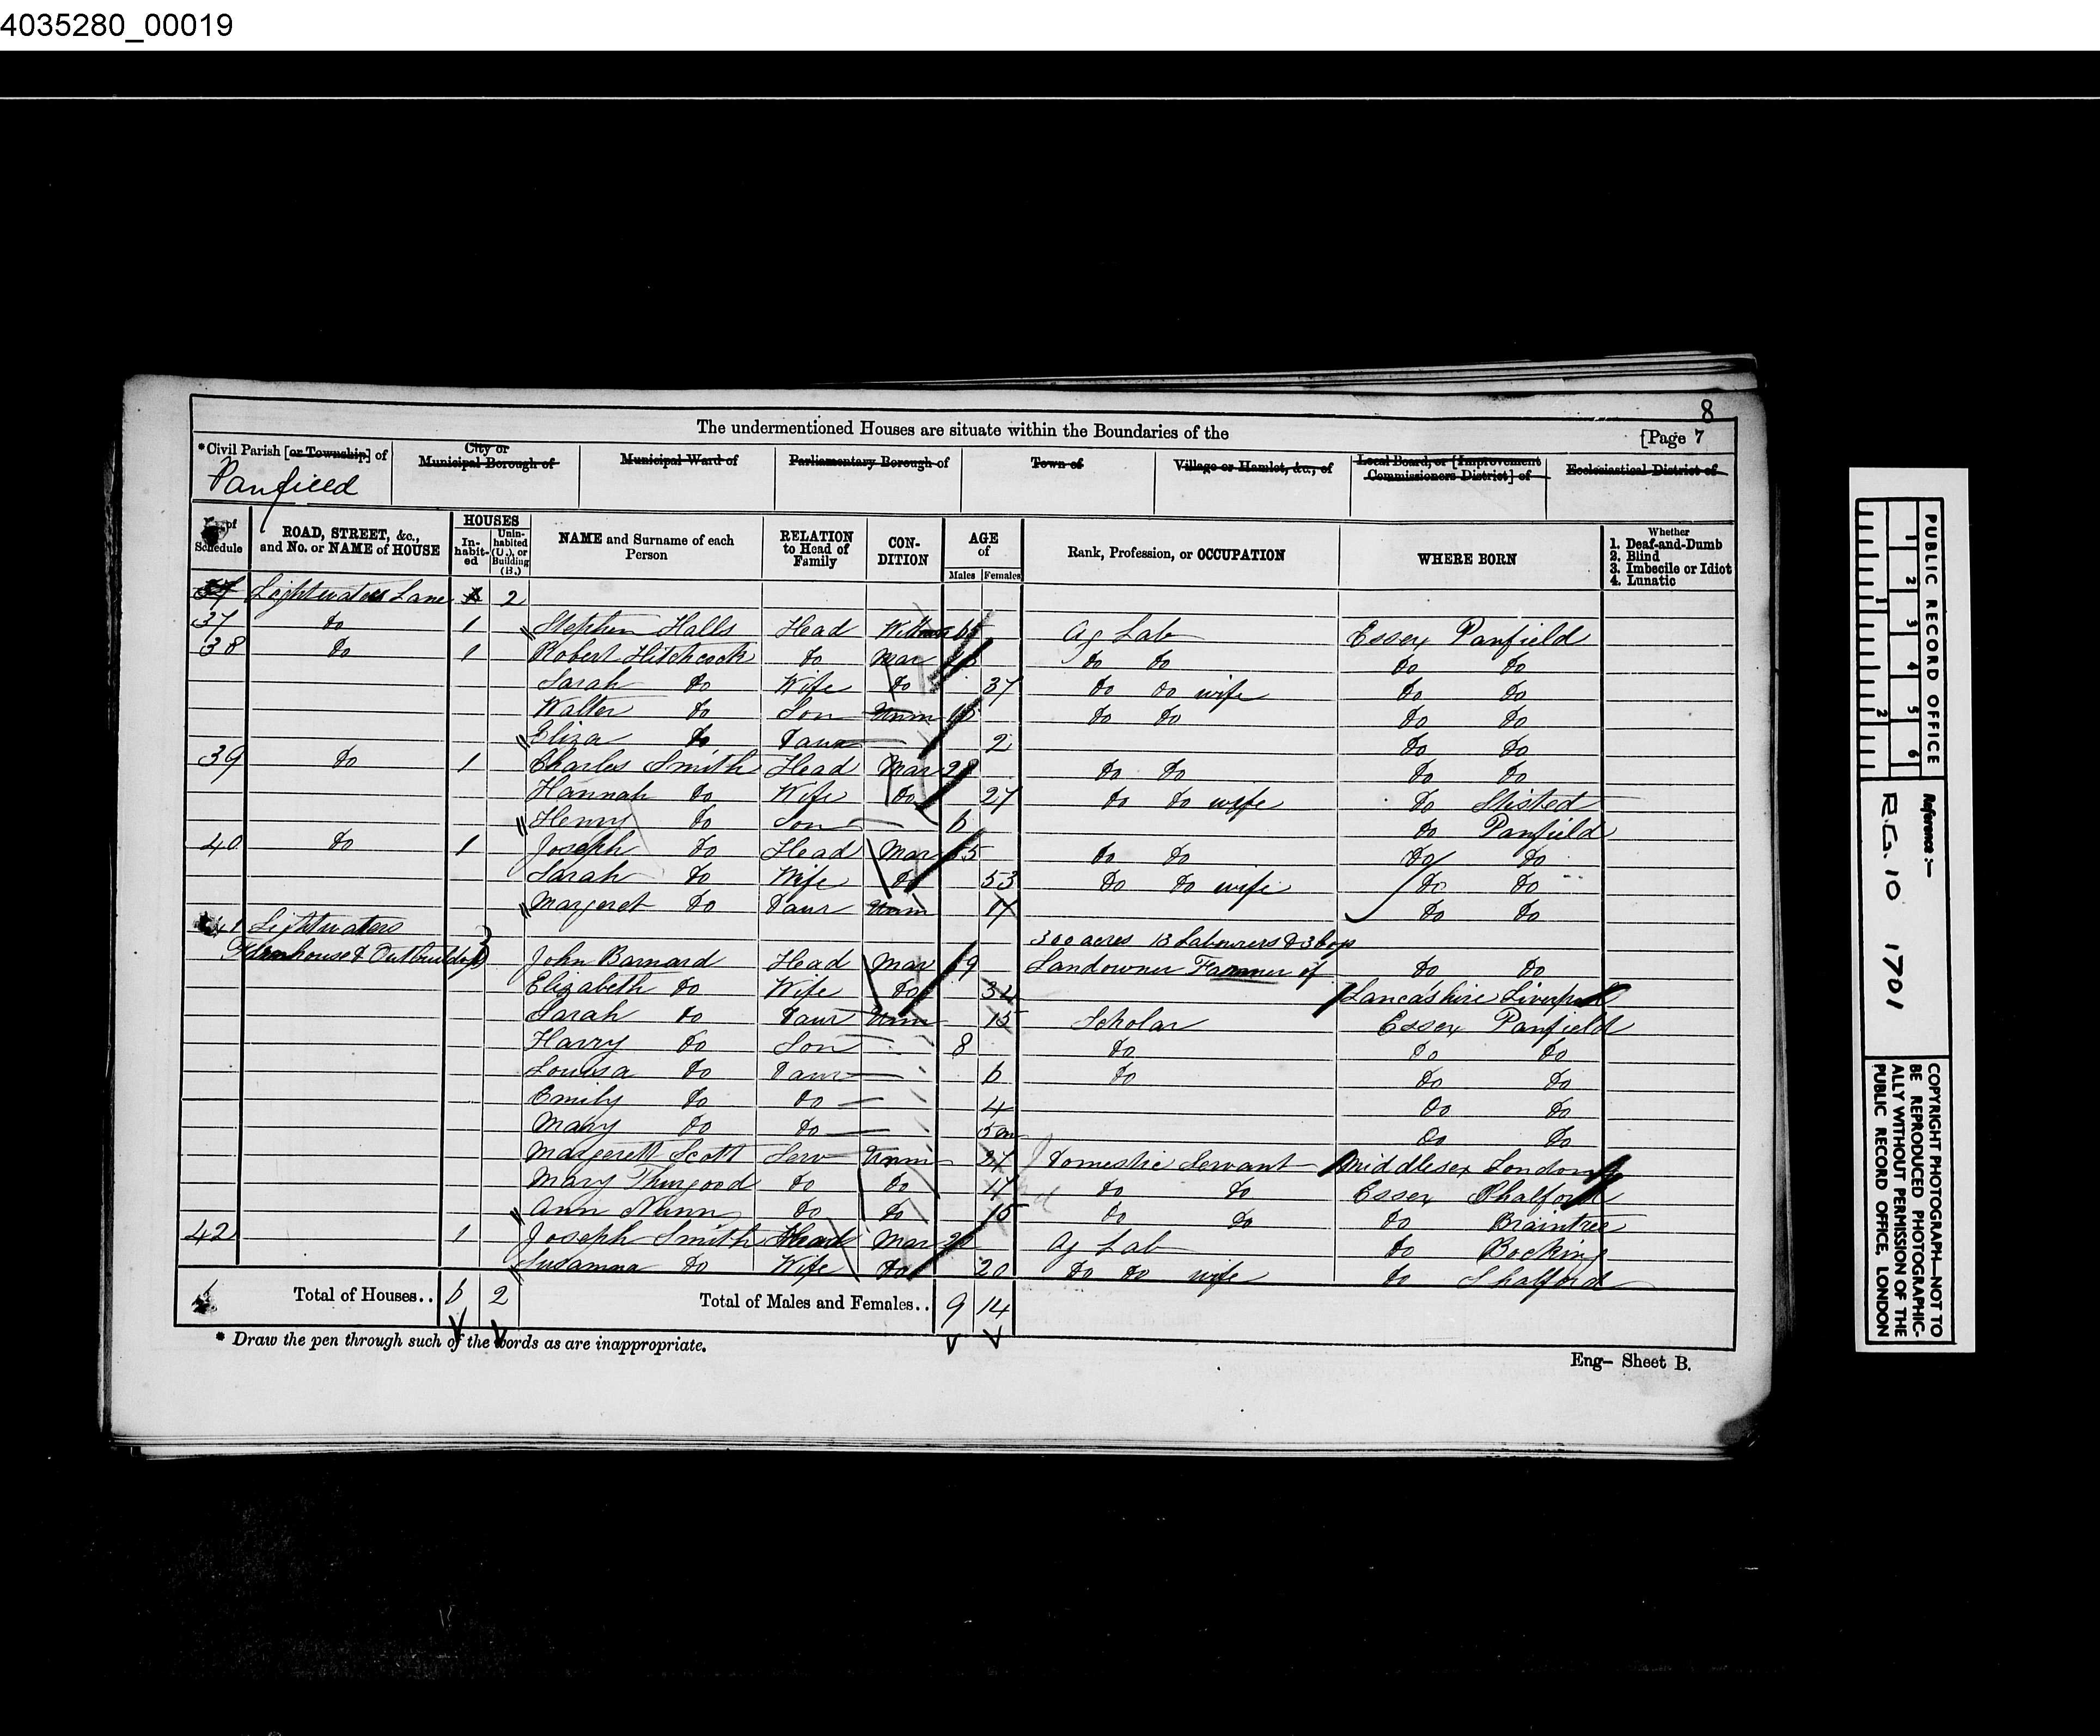 4035280_00019
8
The undermentioned Houses are situate within the Boundaries of the
[Page 7
*Civil Parish [or Township] of
City or Municipal Borough of
Municipal Ward of
Parliamentary Borough of
Town of
Village or Hamlet, &c., of
Local Board, or [Improvement Commissioners District] of
Ecclesiastical District of
Panfield
No. of Schedule
ROAD, STREET, &c., and No. or NAME of HOUSE
HOUSES
In-habit-ed
Unin-habited (U.), or Building (B.)
NAME and Surname of each Person
RELATION to Head of Family
CON-DITION
AGE of
Males
Females
Rank, Profession, or OCCUPATION
WHERE BORN
Whether
1. Deaf-and-Dumb
2. Blind
3. Imbecile or Idiot
4. Lunatic
Lightwaters Lane 2
37 Do 1 Stephen Halls Head 65 Ag Lab Essex Panfield
38 Do 1 Robert Hitchcock Do Mar Do Do Do Do
Sarah Do Wife Do 37 Do Do wife Do Do
Walter Do Son Unm Do Do Do Do
Eliza Do Daur 2 Do Do
39 Do 1 Charles Smith Head Mar Do Do Do Do
Hannah Do Wife Do 27 Do Do wife Do Stisted
Henry Do Son 6 Do Panfield
40 Do 1 Joseph Do Head Mar Do Do Do Do
Sarah Do Wife Do 53 Do Do wife Do Do
Margaret Do Daur Unm 17 Do Do
41 Lightwaters
300 acres 13 Labourers & 3 boys
Farmhouse & Outbuildgs John Barnard Head Mar Landowner Farmer of Do Do
Elizabeth Do Wife Do 34 Lancashire Liverpool
Sarah Do Daur Unm 15 Scholar Essex Panfield
Harry Do Son 8 Do Do Do
Louisa Do Daur 6 Do Do Do
Emily Do Do 4 Do Do
Mary Do Do 5m Do Do
Margerett Scott Serv Unm Domestic Servant Middlesex London
Mary Thurgood Do Do 17 Do Do Essex Shalford
Ann Nunn Do Do 15 Do Do Do Braintree
42 1 Joseph Smith Head Mar Ag Lab Do Bocking
Susanna Do Wife Do 20 Do Do wife Do Shalford
Total of Houses.. 6 2
Total of Males and Females.. 9 14
* Draw the pen through such of the words as are inappropriate.
Eng- Sheet B.
PUBLIC RECORD OFFICE
1 2 3 4 5 6
1 2
Reference :-
R.G. 10 1701
COPYRIGHT PHOTOGRAPH-NOT TO BE REPRODUCED PHOTOGRAPHIC-ALLY WITHOUT PERMISSION OF THE PUBLIC RECORD OFFICE, LONDON